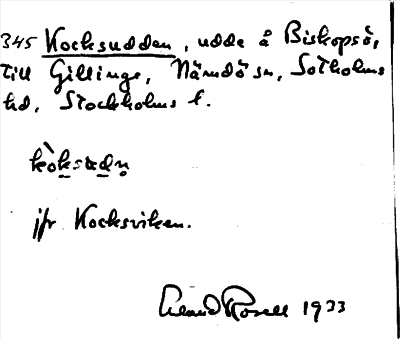 345 Kocksudden, udde å Biskopsö,
till Gillinge, Nämdö sn, Sotholms
hd, Stockholms l.
kòksud̥n̥
jfr Kocksviken.
Rosell 1933